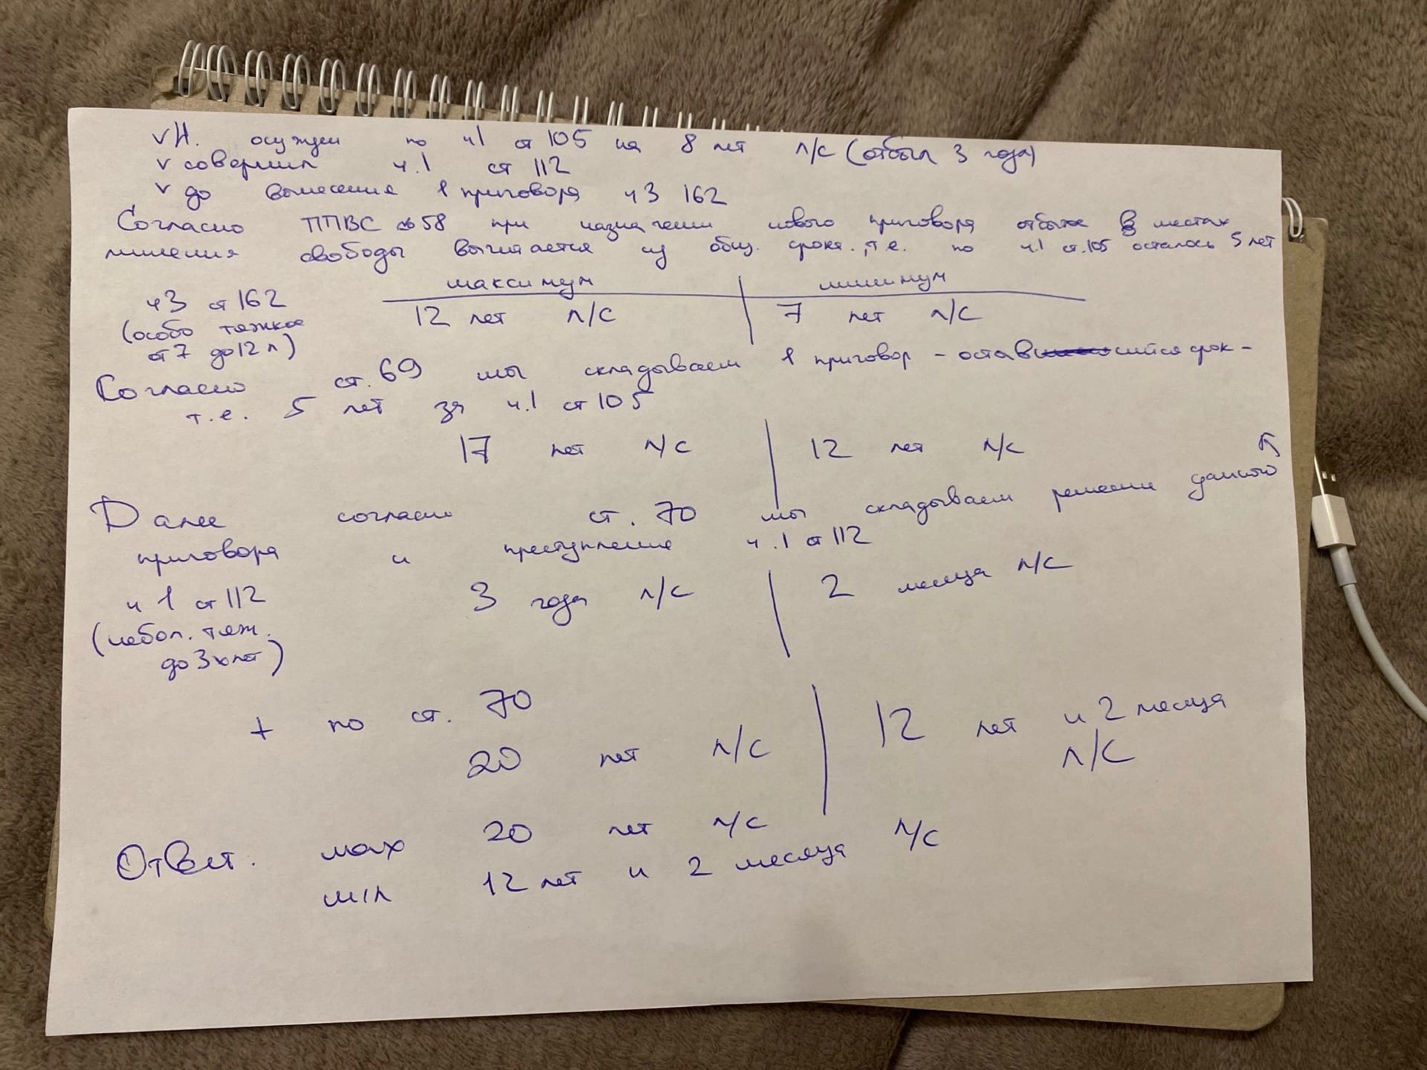 √ Н. осужден по ч1 ст 105 на 8 лет л/с (отбыл 3 года)
√ совершил ч.1 ст 112
√ до вынесения 1 приговора ч3 162
Согласно ППВС №58 при назначении нового приговора отбытое в местах
лишения свободы вычитается из общ. срока, т.е. по ч.1 ст.105 осталось 5 лет
максимум минимум
ч3 ст 162 12 лет л/с 7 лет л/с
(особо тяжкое
от 7 до 12 л)
Согласно ст. 69 мы складываем 1 приговор - оставшийся срок -
т.е. 5 лет за ч.1 ст 105
17 лет л/с 12 лет л/с
Далее согласно ст. 70 мы складываем решение данного
приговора и преступление ч.1 ст 112
ч 1 ст 112 3 года л/с 2 месяца л/с
(небол. тяж.
до 3х лет)
+ по ст. 70
20 лет л/с 12 лет и 2 месяца
л/с
Ответ. max 20 лет л/с
min 12 лет и 2 месяца л/с